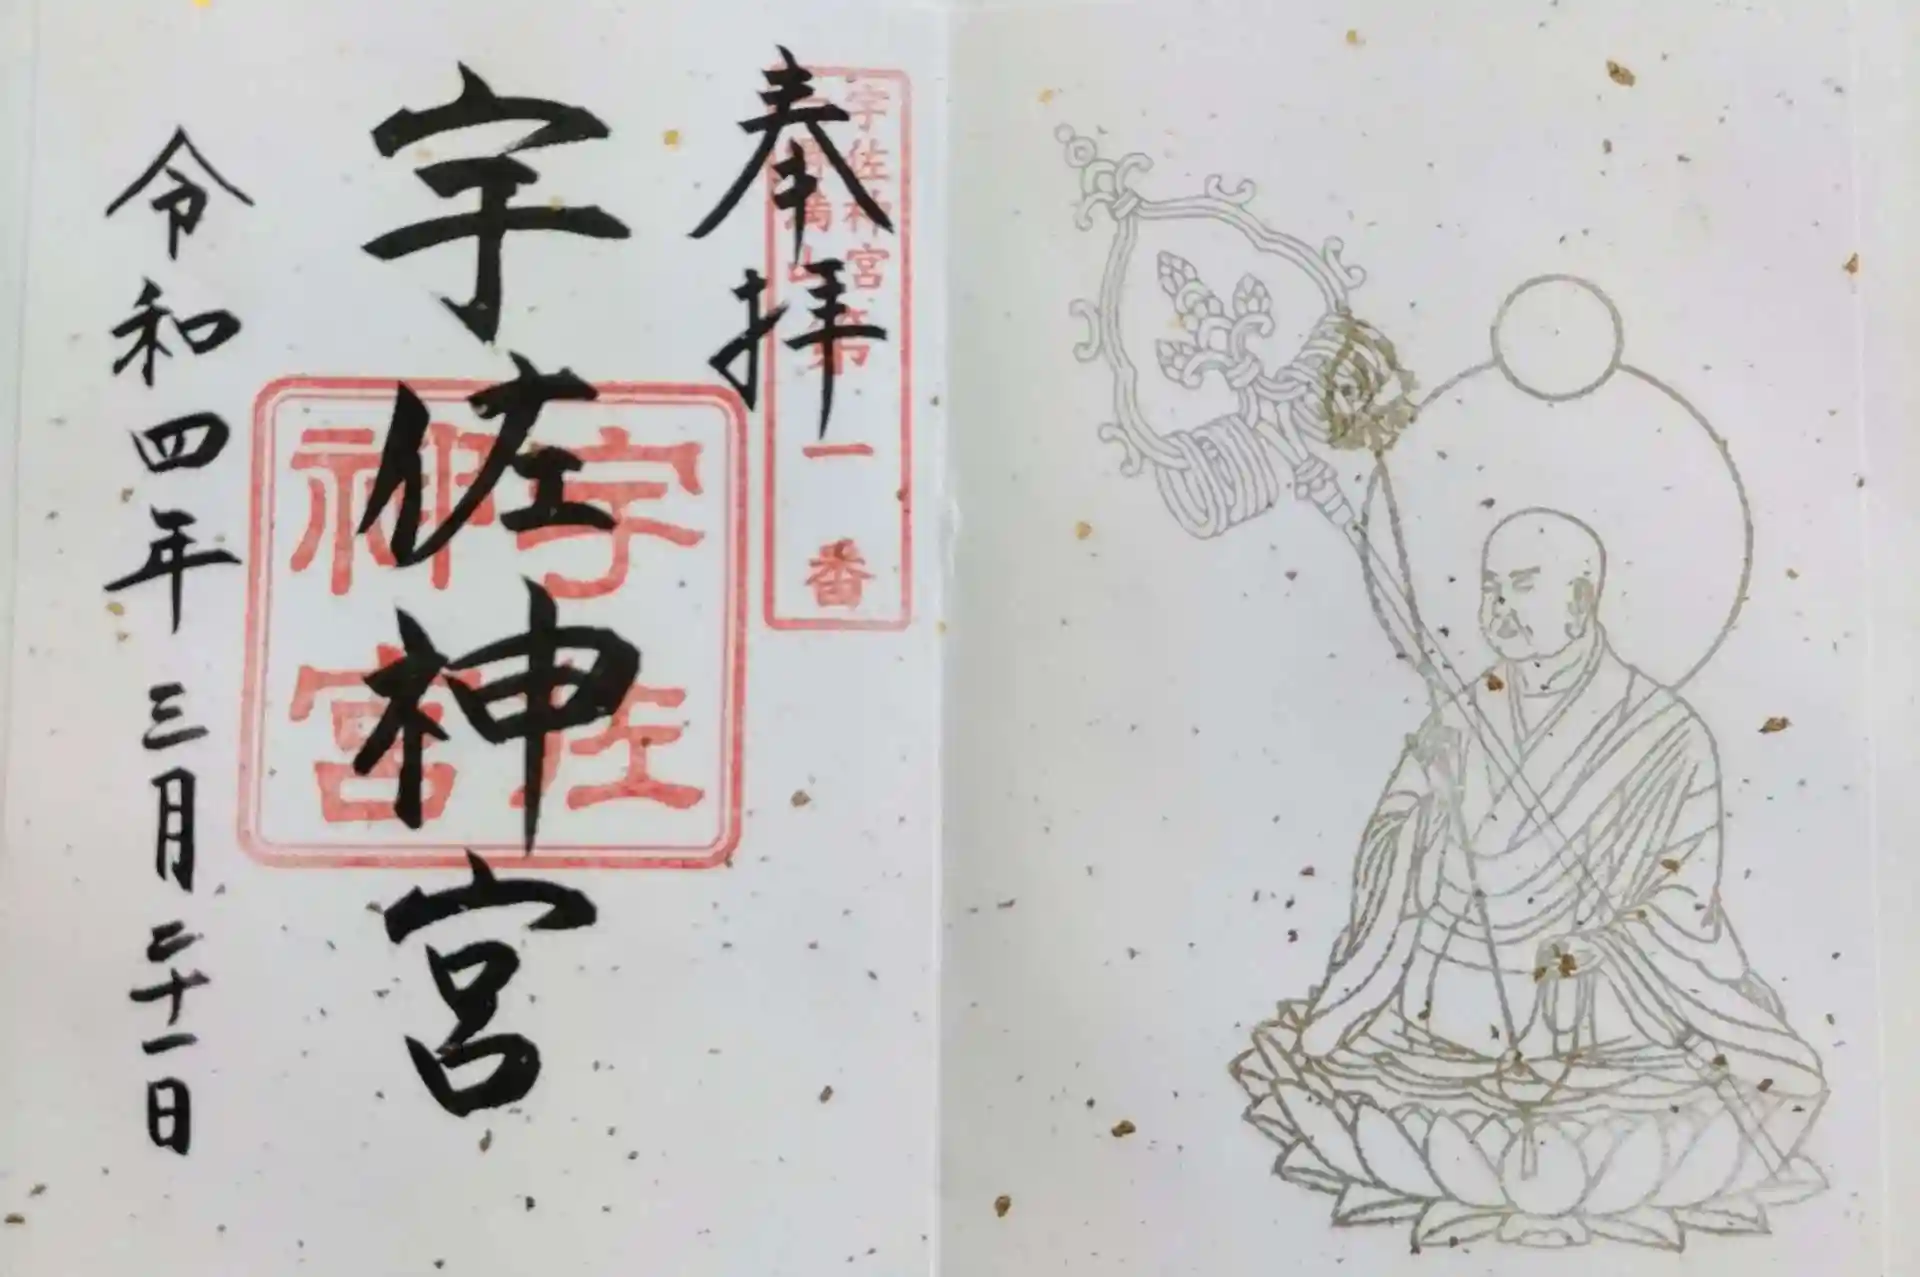 奉拝
宇佐神宮第一番
宇佐神宮
宇佐神宮
令和四年三月二十一日